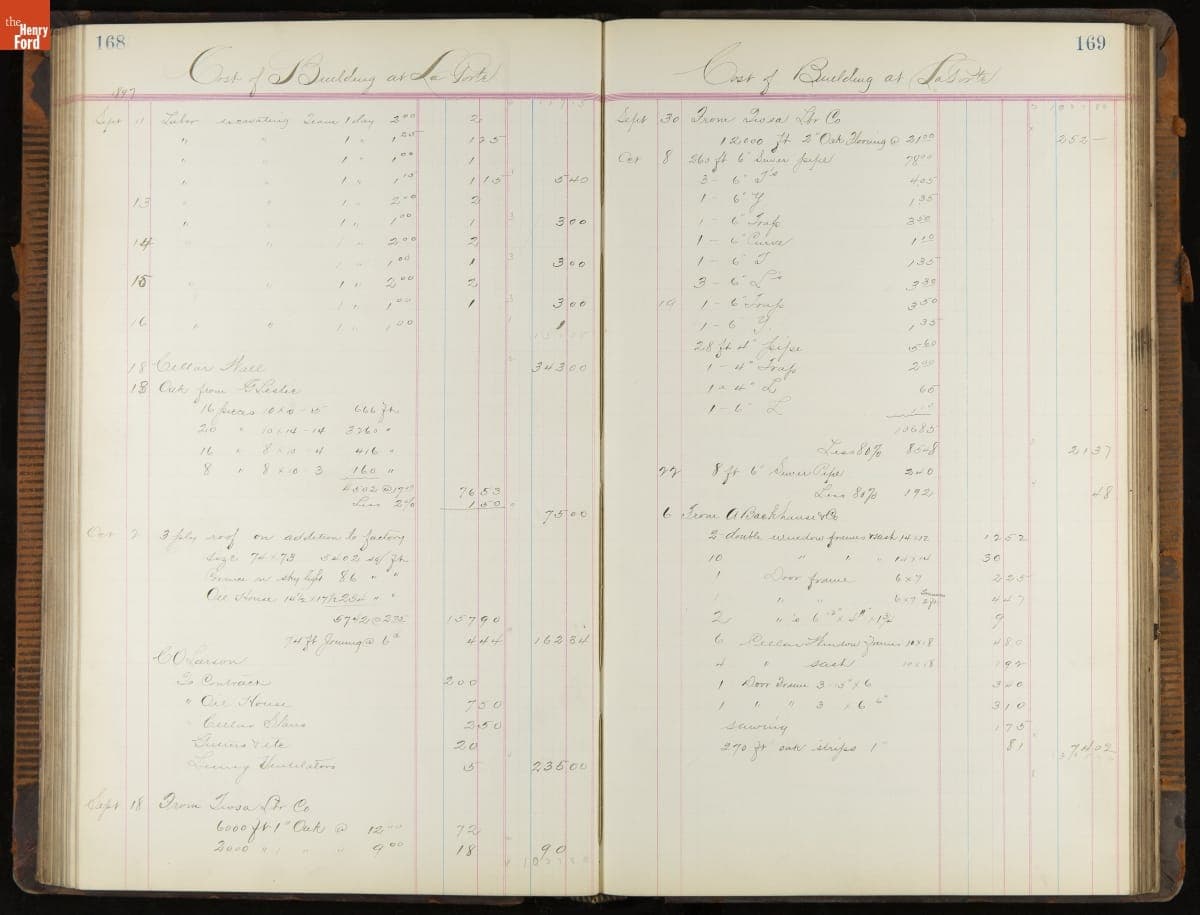 the
Henry
Ford
168
Cost of Building at La Porte
1897
Sept 11 Labor excavating Team 1 day 2.00 2
" " 1 " 1.25 1 25
" " 1 " 1.00 1
" " 1 " 1.15 1 15 5 40
13 " " 1 " 2.00 2
" " 1 " 1.00 1 3 00
14 " " 1 " 2.00 2
" " 1 " 1.00 1 3 00
15 " " 1 " 2.00 2
" " 1 " 1.00 1 3 00
16 " " 1 " 1.00 1
18 Cellar Wall 343 00
18 Oak from G Leslie
16 pieces 10 x 10 - 666 ft
20 " 10 x 14 - 14 3260 "
16 " 8 x 10 - 4 416 "
8 " 8 x 10 3 160 "
4502 @ 17.00 76 53
Less 2% 1 50 75 00
Oct 2 3 ply roof on addition to factory
Size 74 x 73 5402 sq ft
sky light 86 " "
Oil House 14½ x 17½ 254 " "
5742 @ 2.75 157 90
74 ft @ 6¢ 4 44 162 34
C O Larson
To Contract 200
" Oil House 7 50
Cellar Stairs 2 50
& etc 20
Ventilators 5 235 00
Sept 18 From Lbr Co
6000 ft 1" Oak @ 12.00 72
2000 " " " " 9.00 18 90
169
Cost of Building at La Porte
Sept 30 From Lbr Co
12000 ft 2" Oak Flooring @ 21.00 252 -
Oct 8 260 ft 6" Sewer pipe 78.00
3 - 6" T's 4 05
1 - 6" Y 1 35
1 - 6" Trap 3 50
1 - 6" Curve 1 10
1 - 6" T 1 35
3 - 6" L's 3 30
19 1 - 6" Trap 3 50
1 - 6 Y 1 35
28 ft 4" pipe 5 60
1 - 4" Trap 2 00
1 - 4" L 65
1 - 6" L 1 10
106 85
Less 80% 85 48 21 37
22 8 ft 6" Sewer Pipe 2 40
Less 80% 1 92 48
6 From A Backhaus & Co
2 double window frames & sash 14 x 12 12 52
10 " " " 14 x 14 30
1 Door frame 6 x 7 2 25
1 " " 6 x 7 4 47
2 " 9
6 Cellar Window Frames 10 x 18 4 80
4 " sash 10 x 18 1 92
1 Door Frame 3 - 5" x 6 3 40
1 " " 3 x 6 6" 3 10
sawing 1 75
270 ft oak strips 1" 81 74 02